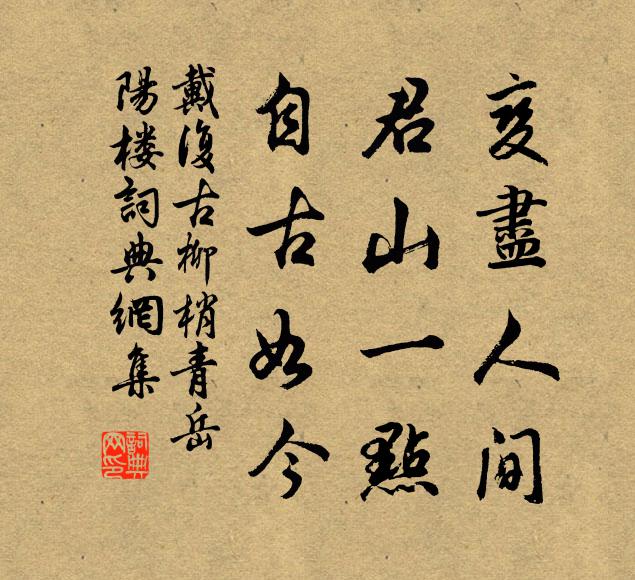 变盡人间
君山一點
自古如今
戴復古柳梢青岳
陽楼詞典網集
詞典
网印